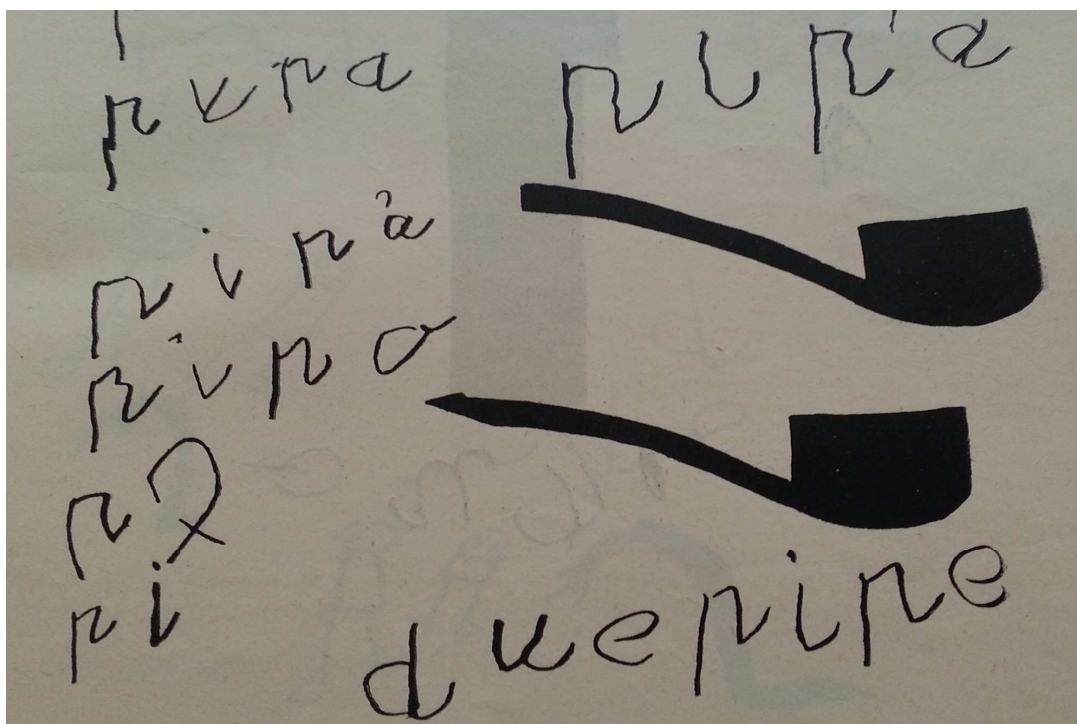 pipa
pipa
pipa
pipa
pi
due pipe